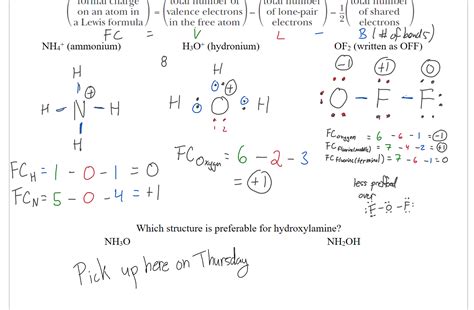 formal charge on an atom in a Lewis formula = total number of valence electrons in the free atom − total number of lone-pair electrons − 1/2 total number of shared electrons
FC = V L − B (# of bonds)
NH4+ (ammonium) H3O+ (hydronium) OF2 (written as OFF)
8
-1 +1 0
H
H − N − H +
H
H O H +
H
O − F − F
FC_H = 1 - 0 - 1 = 0
FC_N = 5 - 0 - 4 = +1
FC_Oxygen = 6 - 2 - 3
= +1
FC_oxygen = 6 - 6 - 1 = -1
FC_Fluorine(middle) = 7 - 4 - 2 = +1
FC_Fluorine(terminal) = 7 - 6 - 1 = 0
less preferred
over
F − O − F
Which structure is preferable for hydroxylamine?
NH3O NH2OH
Pick up here on Thursday